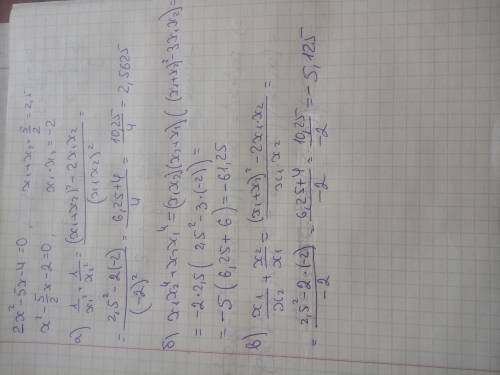 2x² - 5x - 4 = 0, x₁ + x₂ = 5/2 = 2,5
x² - 5/2 x - 2 = 0, x₁ · x₂ = -2
а) 1/x₁² + 1/x₂² = ((x₁+x₂)² - 2x₁x₂)/(x₁·x₂)² =
= (2,5² - 2(-2))/(-2)² = (6,25+4)/4 = 10,25/4 = 2,5625
б) x₁x₂⁴ + x₂x₁⁴ = (x₁x₂)(x₂+x₁)((x₁+x₂)² - 3x₁x₂) =
= -2·2,5(2,5² - 3·(-2)) =
= -5(6,25 + 6) = -61,25
в) x₁/x₂ + x₂/x₁ = ((x₁+x₂)² - 2x₁·x₂)/(x₁x₂) =
= (2,5² - 2·(-2))/-2 = (6,25+4)/-2 = 10,25/-2 = -5,125